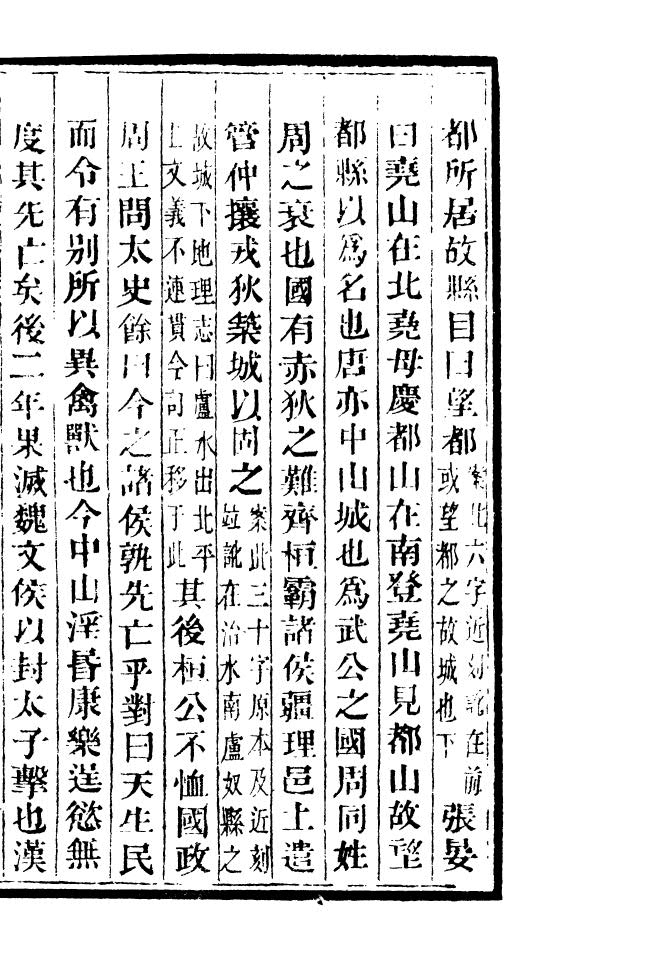 都所居故縣目曰望都案此六字近刻訛在前或望都之故城也下張晏
曰堯山在北堯母慶都山在南登堯山見都山故望
都縣以為名也唐亦中山城也為武公之國周同姓
周之衰也國有赤狄之難齊桓霸諸侯疆理邑土遣
管仲攘戎狄築城以固之案此三十字原本及近刻竝訛在治水南盧奴縣之
故城下地理志曰盧水出北平上文義不連貫今向正移于此其後桓公不恤國政
周王問太史餘曰今之諸侯孰先亡乎對曰天生民
而令有别所以異禽獸也今中山淫昬康樂逞慾無
度其先亡矣後二年果滅魏文侯以封太子擊也漢